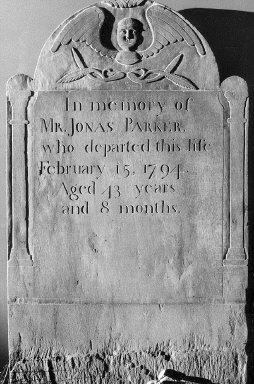 In memory of
MR. JONAS PARKER,
who departed this life
February 15, 1794.
Aged 43 years
and 8 months.